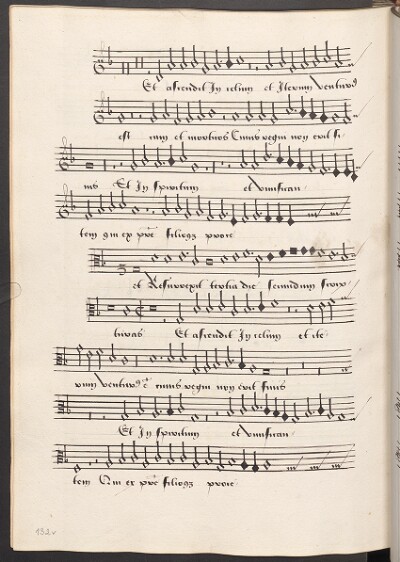 Et ascendit In celum et Iterum ventur9
est cum et mortuos Cuius regni non erit fi-
nis Et In spiritum et vivifican-
tem qui ex pre filioq3 proce
et Resurrexit tertia die secundum scrip
turas Et ascendit In celum et ite-
rum ventur9 e cuius regni non erit finis
Et In spiritum et vivifican-
tem Qui ex pre filioq3 proce
132v